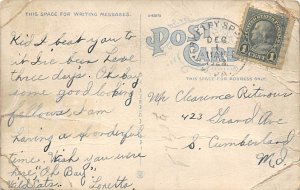 THIS SPACE FOR WRITING MESSAGES.
POST CARD
THIS SPACE FOR ADDRESS ONLY.
DEC
1 CENT 1
Kid I beat you to
it I've been here
three days. Oh boy
some good looking
fellows. I am
having a wonderful
time. Wish you were
here "Oh Boy"
Loretta
Mr Clarence Ritnour
423 Grand Ave
S. Cumberland
Md